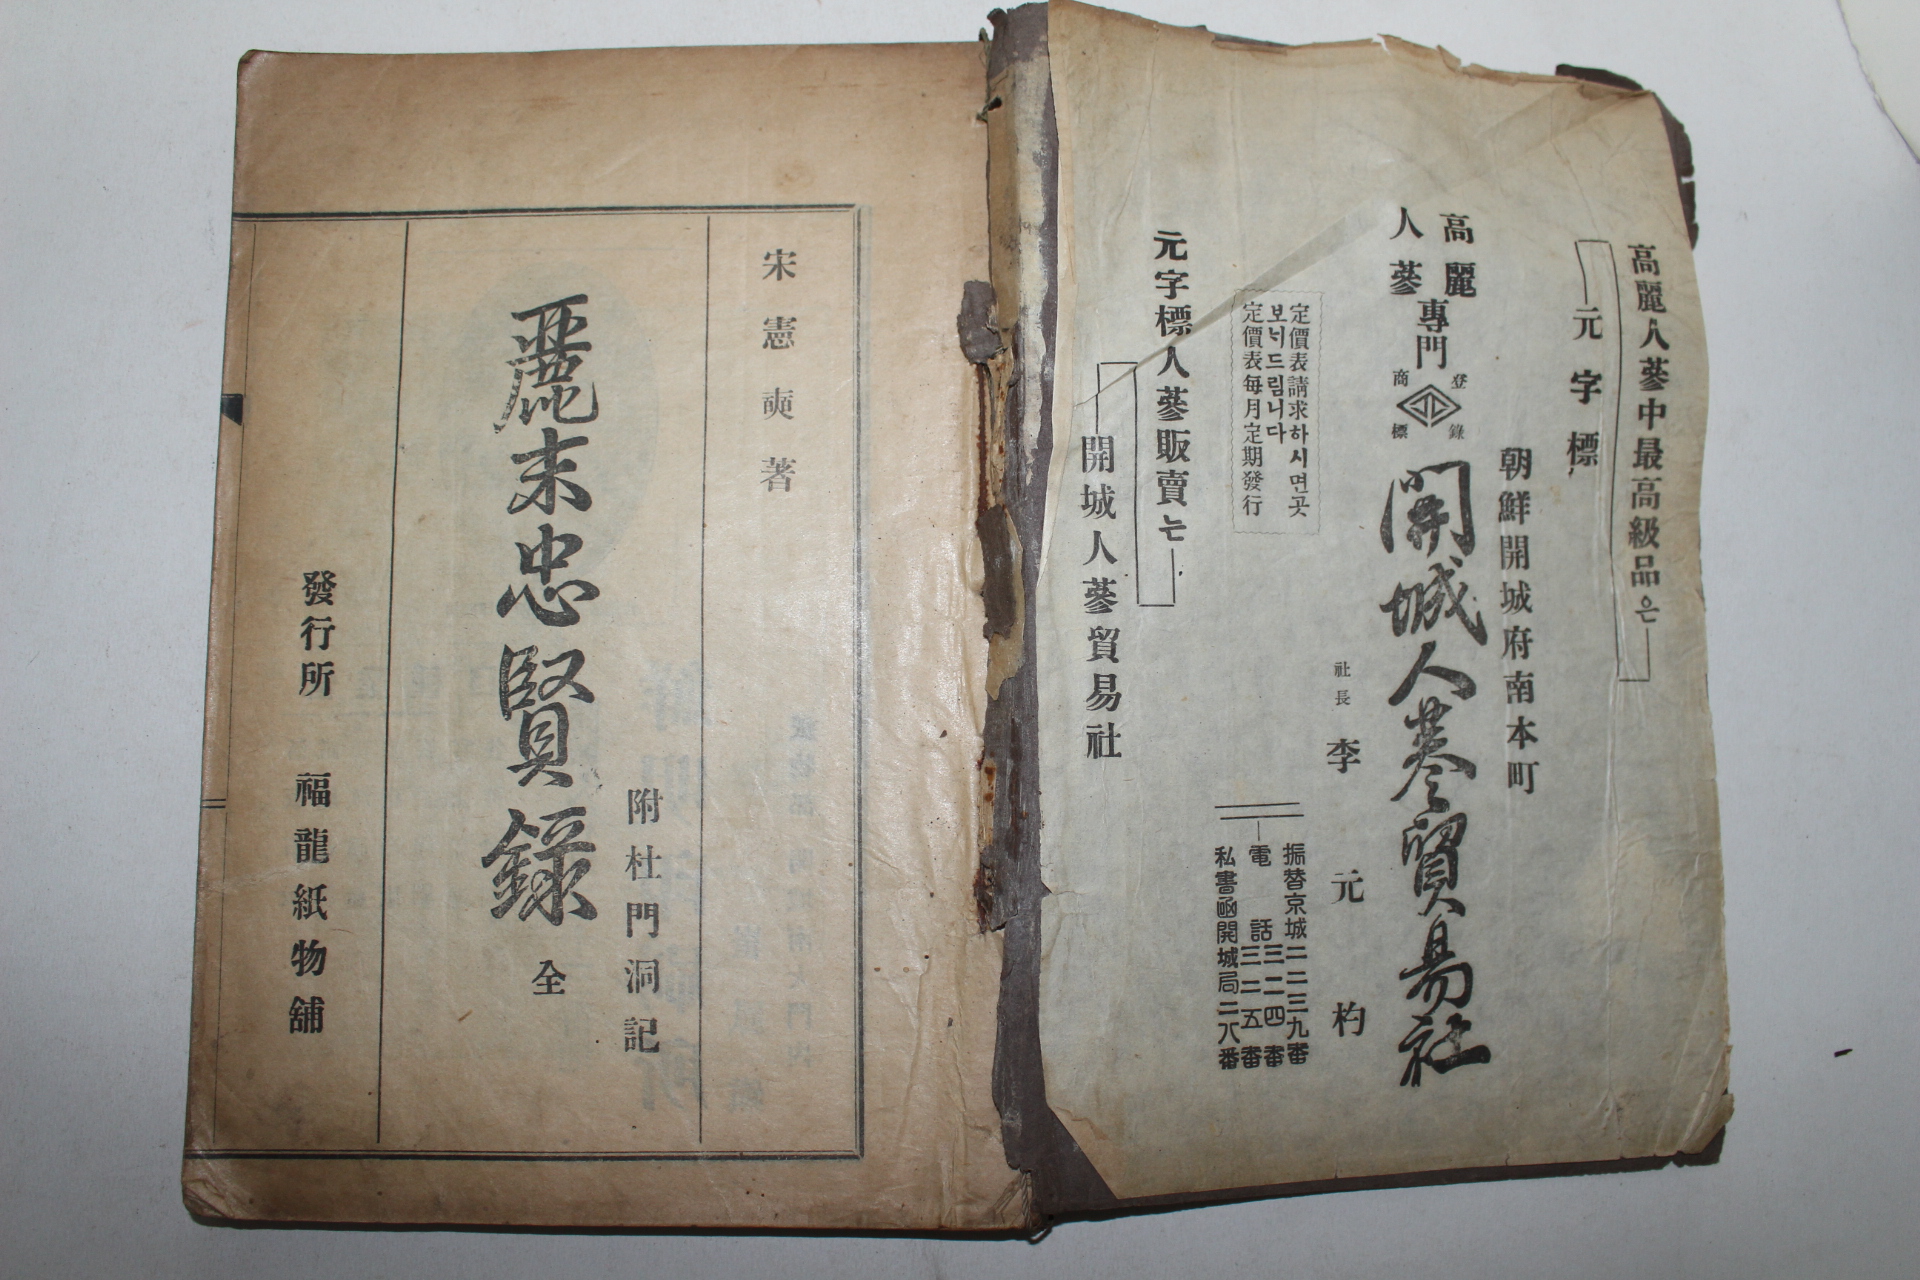 高麗人蔘中最高級品은
元字標
朝鮮開城府南本町
高麗
人蔘
專門
登錄
商標
開城人蔘貿易社
社長 李元杓
定價表請求하시면곳
보넉드림니다
定價表每月定期發行
振替京城二二三九番
電話三一二四番
三二五番
私書函開城局二八番
元字標人蔘販賣는
開城人蔘貿易社
宋憲奭著
附杜門洞記
麗末忠賢錄 全
發行所 福龍紙物舖